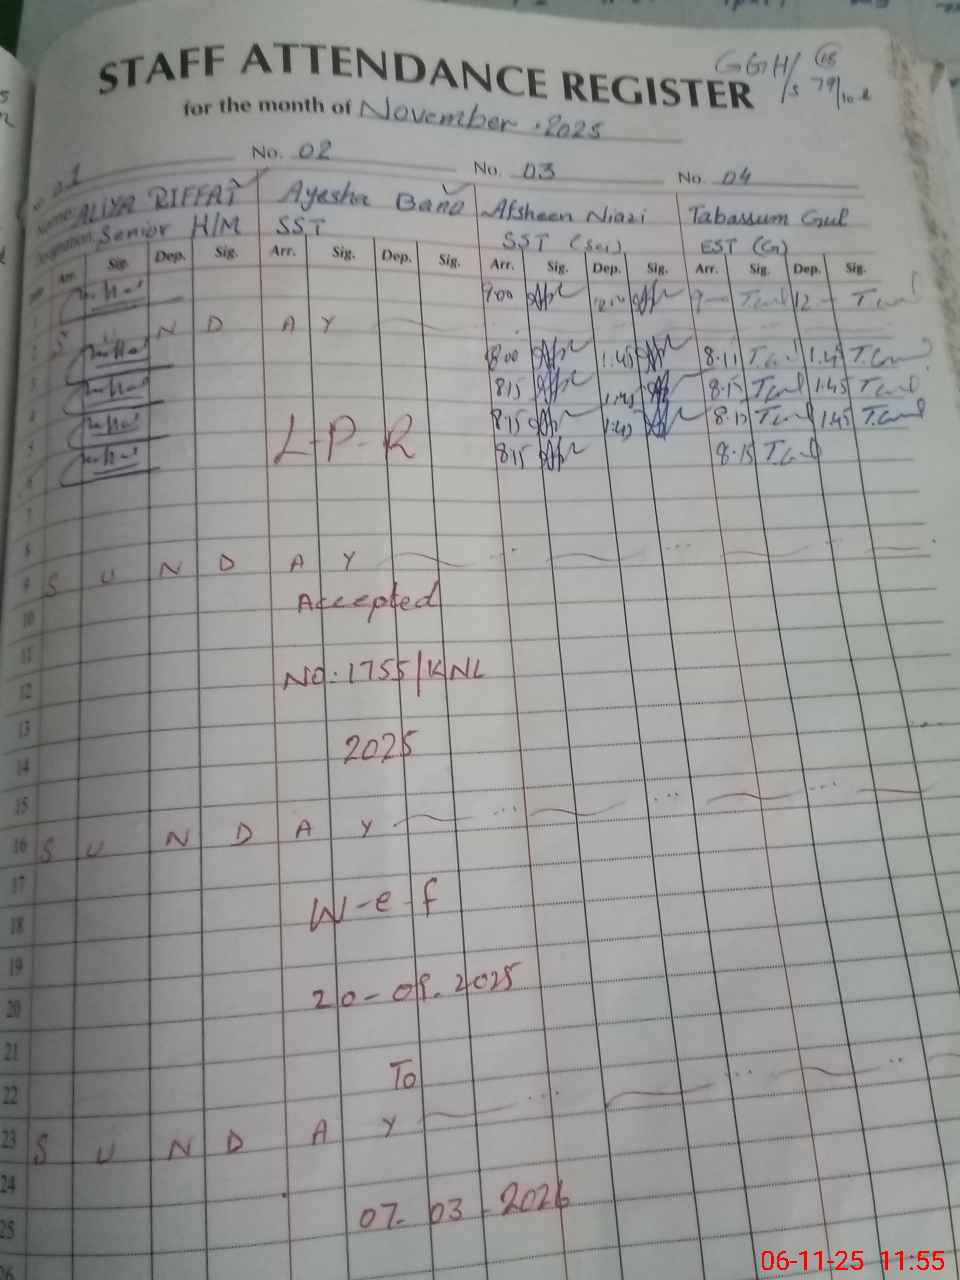 STAFF ATTENDANCE REGISTER
GGH/S 79/10-R
for the month of November . 2025
No. 01 No. 02 No. 03 No. 04
Name ALIYA RIFFAT Ayesha Bano Afsheen Niazi Tabassum Gul
Designation: Senior H/M SST SST (Sci) EST (Gn)
Arr. Sig. Dep. Sig. Arr. Sig. Dep. Sig. Arr. Sig. Dep. Sig. Arr. Sig. Dep. Sig.
1 9:00 9 T.Gul 12 T.Gul
2 S U N D A Y
3 8:00 1:45 8:11 T.Gul 1:45 T.Gul
4 815 1:45 8:15 T.Gul 1:45 T.Gul
5 L-P-R 815 1:45 8:15 T.Gul 1:45 T.Gul
6 815 8:15 T.Gul
7
8
9 S U N D A Y
10 Accepted
11
12 NO. 1755/KNL
13
14 2025
15
16 S U N D A Y
17
18 W-e-f
19
20 20-08.2025
21
22 To
23 S U N D A Y
24
25 07-03-2026
26
06-11-25 11:55